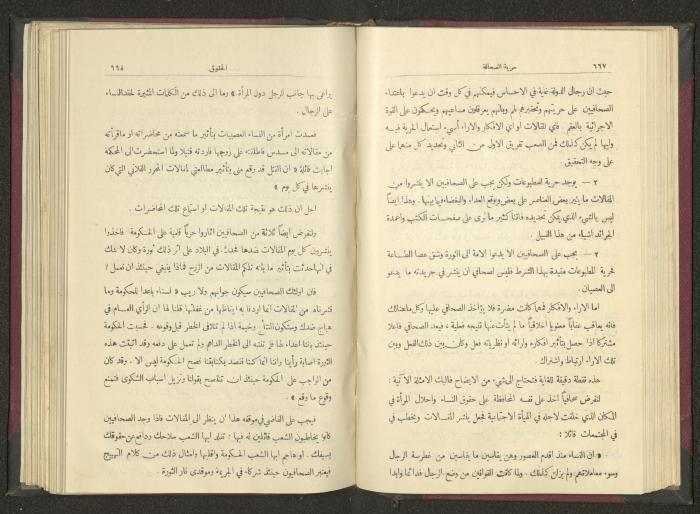 ٦٦٧
حرية الصحافة
حيث ان رجال الدولة غاية في الاحساس فيمكنهم في كل وقت ان يدعوا باعتداء
الصحافيين على حريتهم وتحقيرهم لهم وبانهم يعرقلون مساعيهم ويحكمون على القوة
الاجرائية بالعقم. فذي المقالات او اي الافكار والاراء أسيء استعمال الحرية فيه
وايها لم يكن كذلك فمن الصعب تفريق الاول من الثاني وتحديد كل منهما على
وجه التحقيق.
٢ — يوجد حرية للمطبوعات ولكن يجب على الصحافيين الا ينشروا من
المقالات ما يثير بعض العناصر على بعض ويوقع العداء والبغضاء فيما بينها. وهذا ايضاً
ليس بالشيء الذي يمكن تحديده فاننا كثيراً ما نرى على صفحات الكتب واعمدة
الجرائد اشياء من هذا القبيل.
٢ — يجب على الصحافيين الا يدعوا الامة الى الثورة وشق عصا الطاعة
فحرية المطبوعات مقيدة بهذا الشرط فليس لصحافي ان ينشر في جريدته ما يدعو
الى العصيان.
اما الاراء والافكار فمهما كانت مضرة فلا يؤاخذ الصحافي عليها وكل ما هنالك
فانه يعاقب عقاباً معنوياً اخلاقياً ما لم يتأت عنها نتيجة فعلية، فيعد الصحافي فاعلا
مشتركا اذا حصل بتأثير افكاره وارائه او نظرياته فعل وكان بين ذلك الفعل وبين
تلك الاراء ارتباط واشتراك.
هذه نقطة دقيقة للغاية فتحتاج الى شيء من الايضاح فاليك الامثلة الآتية:
لنفرض صحافياً اخذ على نفسه المحافظة على حقوق النساء واحلال المرأة في
المكان الذي خلقت لاجله في الحياة الاجتماعية فجعل ينشر المقالات ويخطب في
المجتمعات قائلا:
«ان النساء منذ اقدم العصور وهن يقاسين ما يقاسين من غطرسة الرجال
وسوء معاملاتهم ولم يزلن كذلك. ولما كانت القوانين من وضع الرجال فدائماً وابداً
الحقوق
٦٦٨
يراعى بها جانب الرجل دون المرأة» وما الى ذلك من الكلمات المثيرة لحقد النساء
على الرجال.
فعمدت امرأة من النساء العصبيات بتأثير ما سمعته من محاضراته او ما قرأته
من مقالاته الى مسدس فاطلقته على زوجها فاردته قتيلا ولما استحضرت الى المحكمة
اجابت قائلة «ان القتل قد وقع مني بتأثير مطالعتي لمقالات المحرر الفلاني التي كان
ينشرها في كل يوم»
اجل ان ذلك هو نتيجة تلك المقالات او استماع تلك المحاضرات.
ولنفرض ايضاً ثلاثة من الصحافيين اثاروا حرباً قلمية على الحكومة فاخذوا
ينشرون كل يوم المقالات ضدها فحدث في البلاد على اثر ذلك ثورة وكان لا شك
في انها حدثت بتأثير ما بثته تلكم المقالات من الروح فماذا ينبغي حينئذ ان نعمل؟
فان اولئك الصحافيين سيكون جوابهم ولا ريب «لسنا باعداء للحكومة وما
نشرناه من المقالات انما اردنا به ايقاظها من غفلتها فقلنا لها ان الرأي العام في
هياج ضدك وستكون النتائج وخيمة اذا لم تتلافى الخطر قبل وقوعه. فحسبت الحكومة
حينئذ باننا اعداء لها فلم تنتبه الى الخطر الداهم ولم تعمل على دفعه وقد اثبتت هذه
الثورة اصابة رأينا واننا انما كنا نقصد بكتابتنا نصح الحكومة ليس الا. وقد كان
من الواجب على الحكومة حينئذ ان تنتصح بقولنا وتزيل اسباب الشكوى فتمنع
وقوع ما وقع».
فيجب على القاضي في موقفه هذا ان ينظر الى المقالات فاذا وجد الصحافيين
كانوا يخاطبون الشعب قائلين له فيها: تقلد ايها الشعب سلاحك ودافع عن حقوقك
بسيفك. او هاجم ايها الشعب الحكومة واقلبها وامثال ذلك من كلام التهييج
فيعتبر الصحافيون حينئذ شركاء في الجريمة وموقدي نار الثورة.